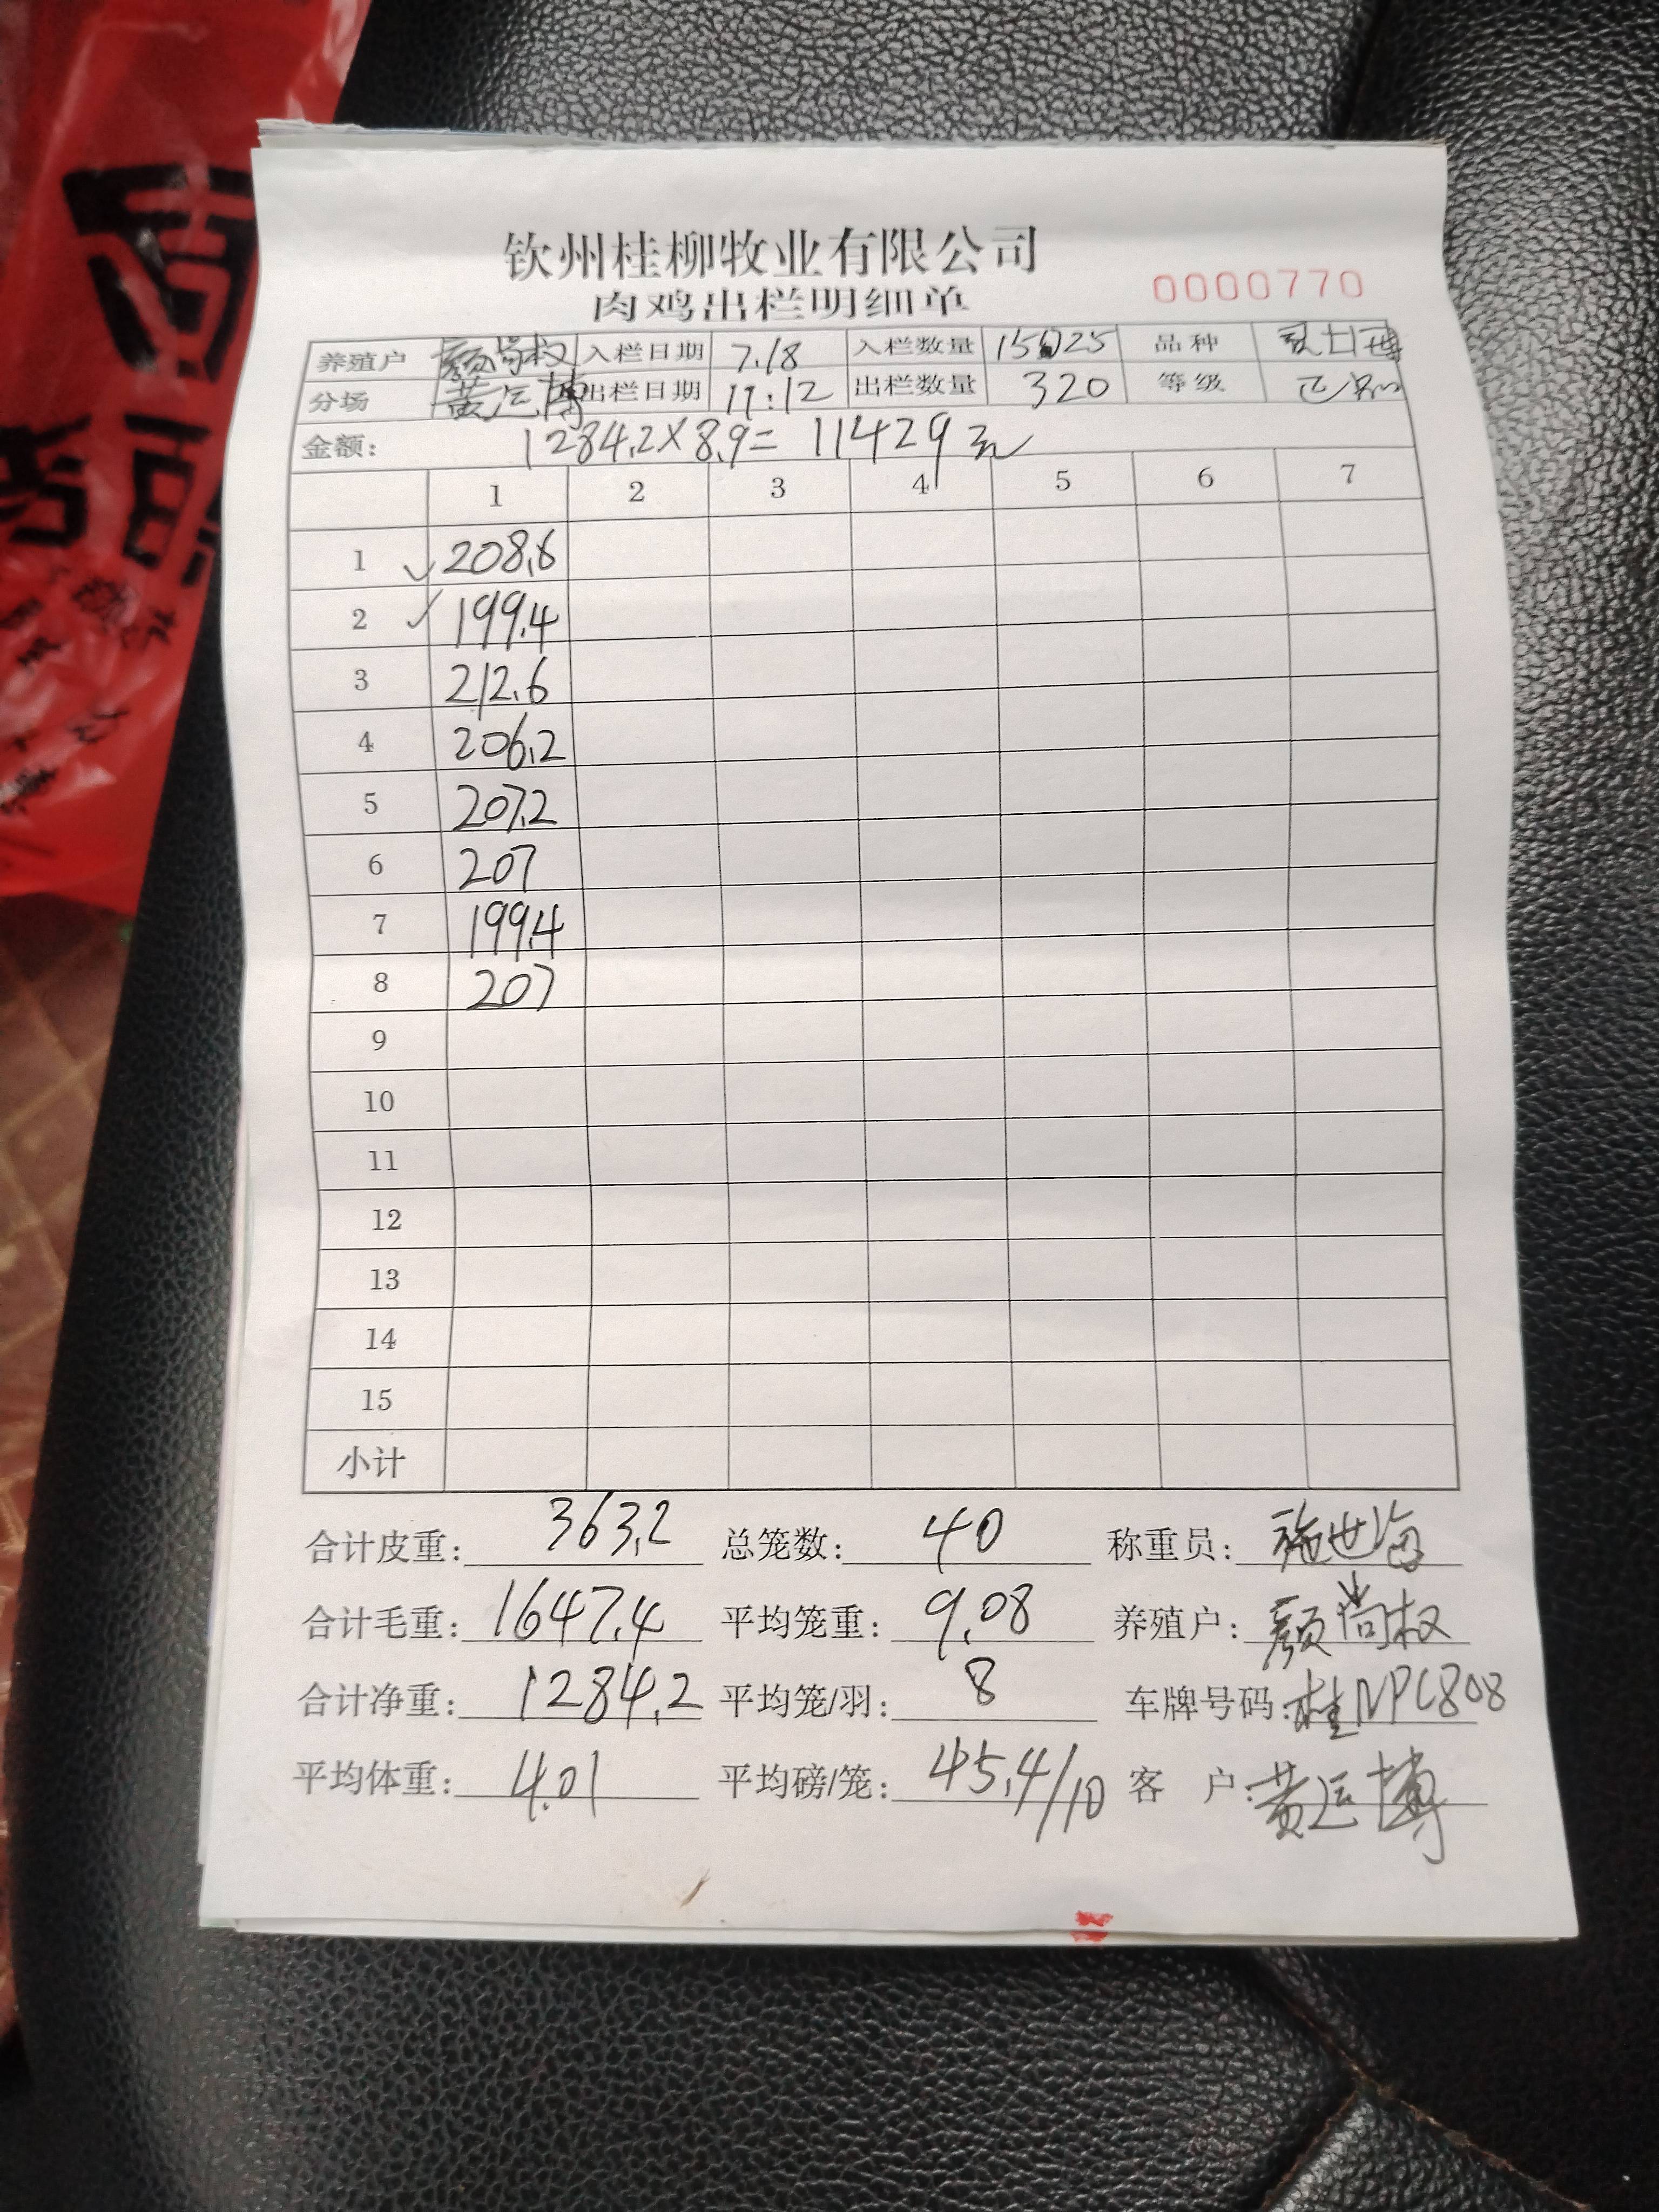 钦州桂柳牧业有限公司
肉鸡出栏明细单 0000770
养殖户 颜尚权 入栏日期 7.18 入栏数量 15025 品种
分场 黄运博 出栏日期 11:12 出栏数量 320 等级
金额: 1284.2×8.9=11429元
1 2 3 4 5 6 7
1 208.6
2 199.4
3 212.6
4 206.2
5 207.2
6 207
7 199.4
8 207
9
10
11
12
13
14
15
小计
合计皮重: 363.2 总笼数: 40 称重员: 施世海
合计毛重: 1647.4 平均笼重: 9.08 养殖户: 颜尚权
合计净重: 1284.2 平均笼/羽: 8 车牌号码: 桂NPC808
平均体重: 4.01 平均磅/笼: 45.4/10 客 户: 黄运博